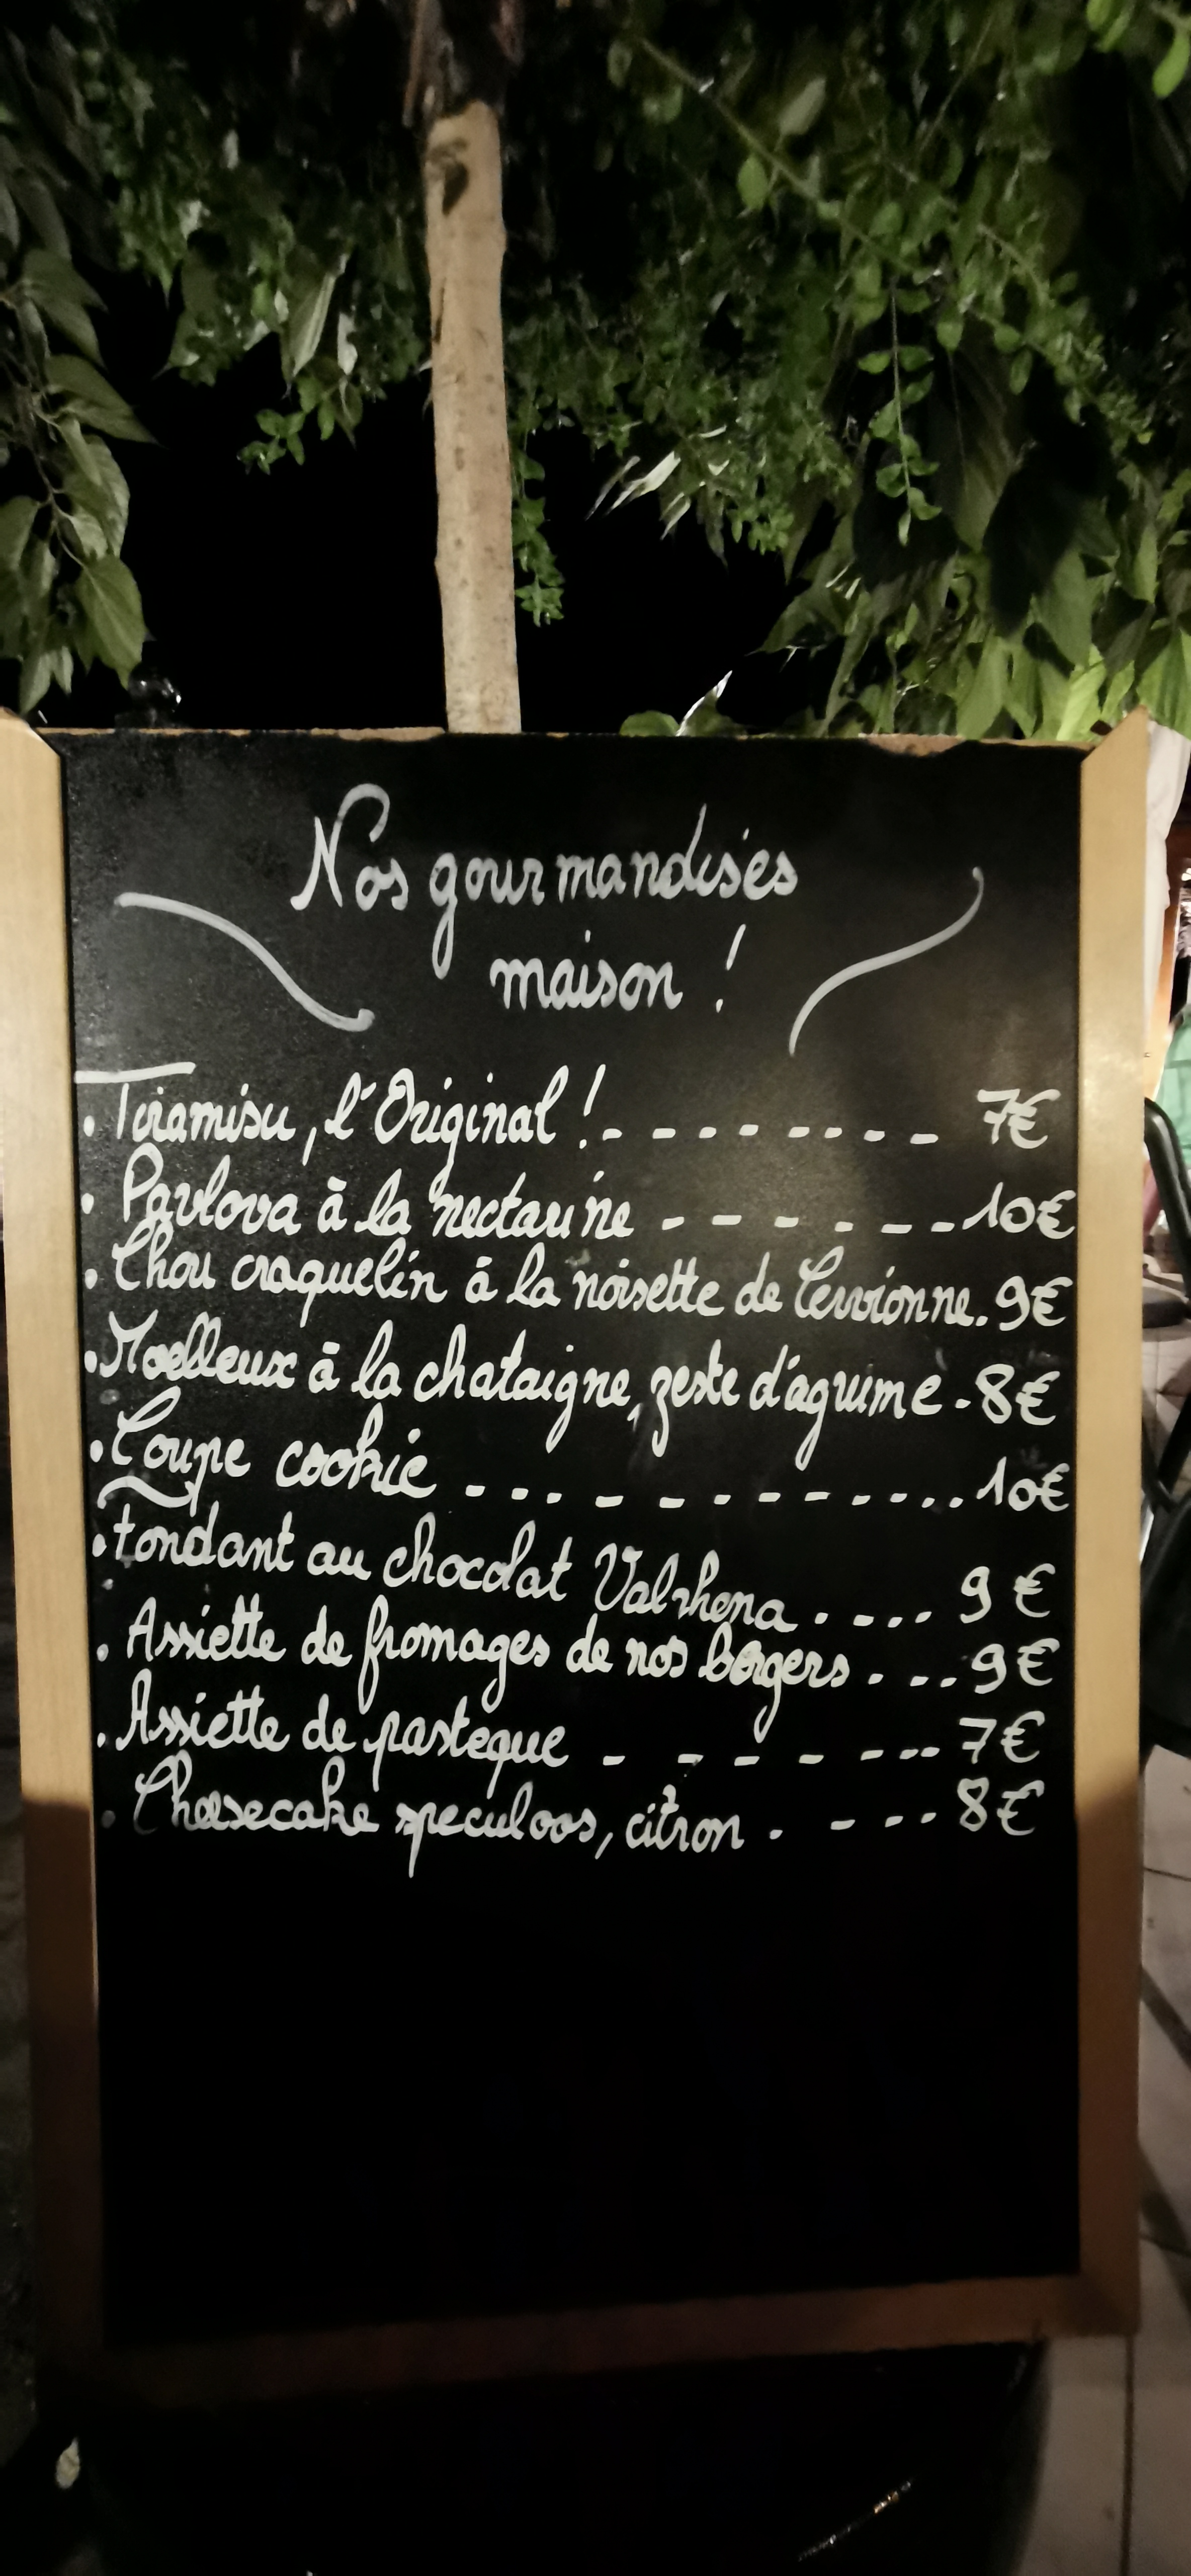 Nos gourmandises
maison !
. Tiramisu, l'Original ! - - - - - - - - 7€
. Pavlova à la nectarine - - - - - - - 10€
. Chou craquelin à la noisette de Cervionne. 9€
. Moelleux à la chataigne, zeste d'agrume - 8€
. Coupe cookie - - - - - - - - - - - - 10€
. Fondant au chocolat Valrhona . - - - 9 €
. Assiette de fromages de nos bergers . - - 9€
. Assiette de pasteque - - - - - - - 7€
. Cheesecake speculoos, citron . - - - 8€